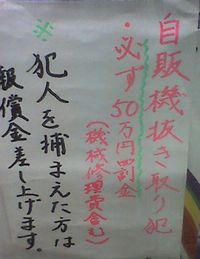 自販機抜き取り犯
・必ず50万円罰金
(機械修理費含む)
※
犯人を捕まえた方は
報償金差し上げます。